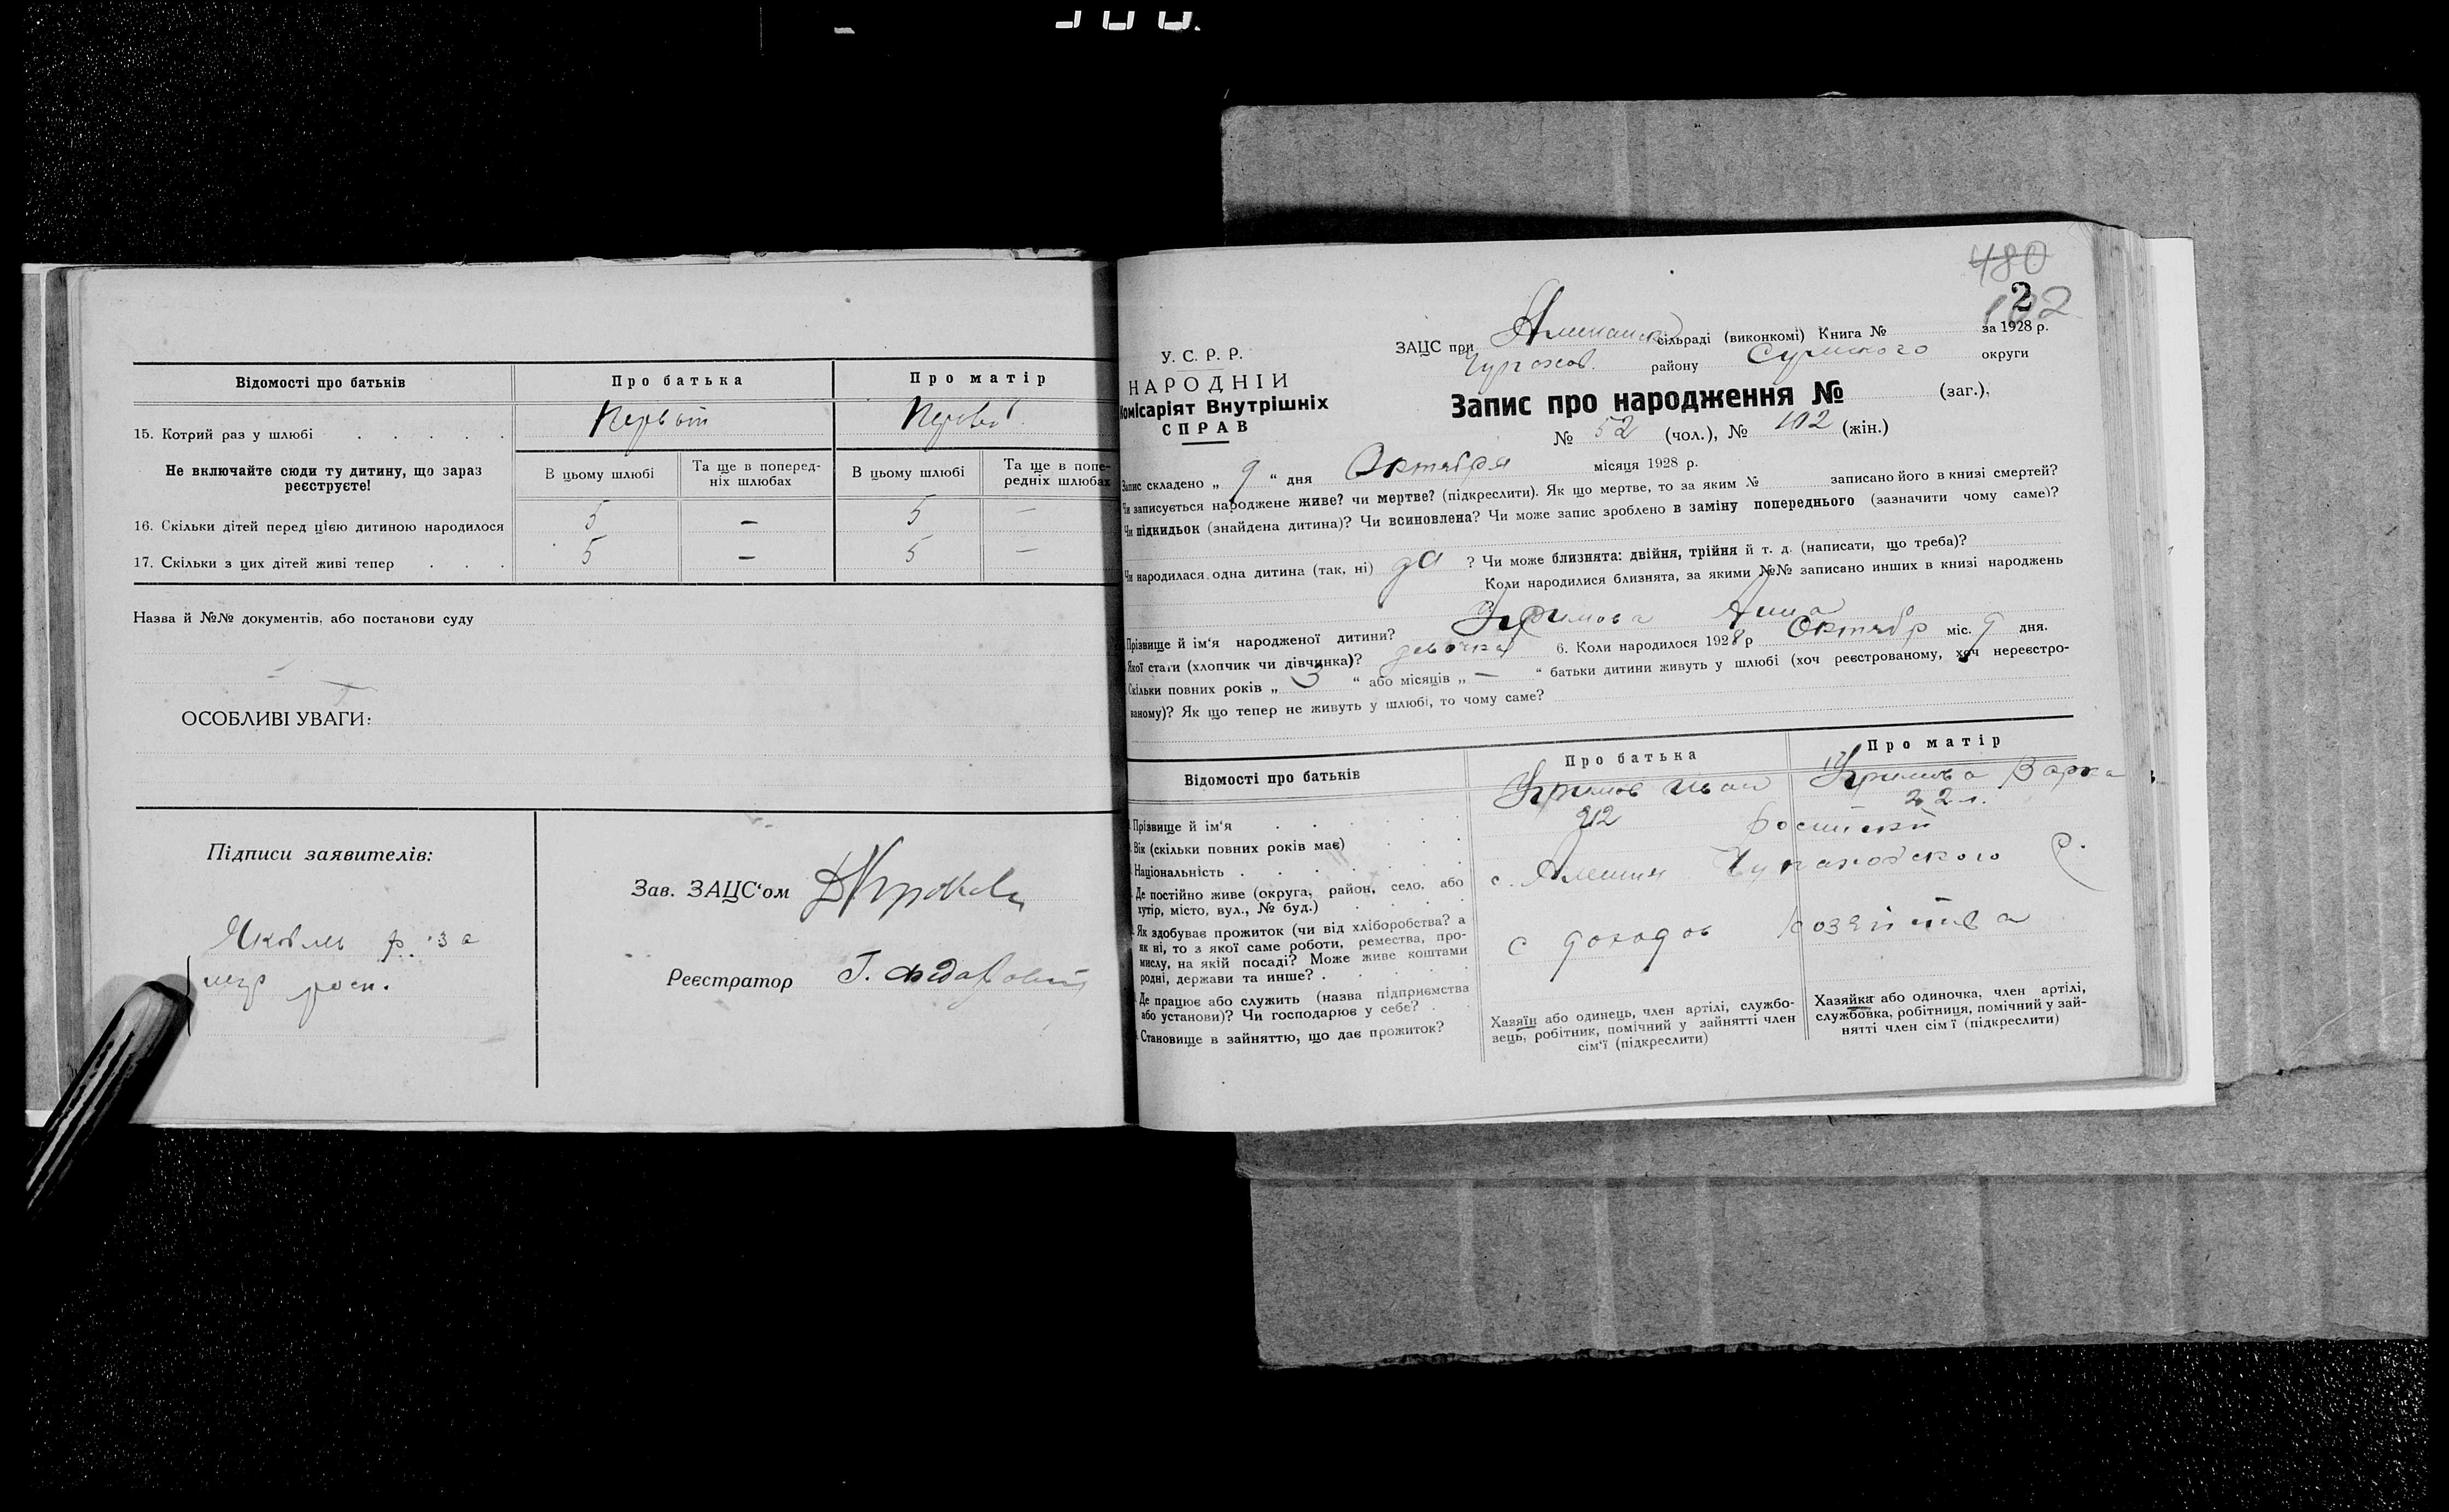 Відомості про батьків
Про батька
Про матір
15. Котрий раз у шлюбі
Первый
Не включайте сюди ту дитину, що зараз
реєструєте!
В цьому шлюбі
Та ще в поперед-
ніх шлюбах
В цьому шлюбі
Та ще в попе-
редніх шлюбах
16. Скільки дітей перед цією дитиною народилося
5 — 5 —
17. Скільки з цих дітей живі тепер
5 — 5 —
Назва й №№ документів, або постанови суду
ОСОБЛИВІ УВАГИ:
Підписи заявителів:
Зав. ЗАЦС'ом
Реєстратор
480
2
102
У. С. Р. Р.
НАРОДНІЙ
Комісаріят Внутрішніх
СПРАВ
ЗАЦС при сільраді (виконкомі) Книга № за 1928 р.
району Сумского округи
Запис про народження № (заг.),
№ 52 (чол.), № 102 (жін.)
Запис складено „ 9 “ дня Октября місяця 1928 р.
Чи записується народжене живе? чи мертве? (підкреслити). Як що мертве, то за яким № записано його в книзі смертей?
Чи підкидьок (знайдена дитина)? Чи всиновлена? Чи може запис зроблено в заміну попереднього (зазначити чому саме)?
Чи народилася одна дитина (так, ні) да ? Чи може близнята: двійня, трійня й т. д. (написати, що треба)?
Коли народилися близнята, за якими №№ записано инших в книзі народжень
Прізвище й ім'я народженої дитини? Анна
Якої стати (хлопчик чи дівчинка)? девочка 6. Коли народилося 1928 р Октябр міс. 9 дня.
Скільки повних років „ 3 “ або місяців „ — “ батьки дитини живуть у шлюбі (хоч реєстрованому, хоч нереєстро-
ваному)? Як що тепер не живуть у шлюбі, то чому саме?
Відомості про батьків
Про батька
Про матір
Прізвище й ім'я
Иван
Варка
Вік (скільки повних років має)
22 л.
Національність
Де постійно живе (округа, район, село, або
хутір, місто, вул., № буд.)
Як здобуває прожиток (чи від хліборобства? а
як ні, то з якої саме роботи, ремества, про-
мислу, на якій посаді? Може живе коштами
родні, держави та инше?
с доходов
Де працює або служить (назва підприємства
або установи)? Чи господарює у себе?
Становище в зайняттю, що дає прожиток?
Хазяїн або одинець, член артілі, службо-
вець, робітник, помічний у зайнятті член
сім'ї (підкреслити)
Хазяйка або одиночка, член артілі,
службовка, робітниця, помічний у зай-
нятті член сім'ї (підкреслити)